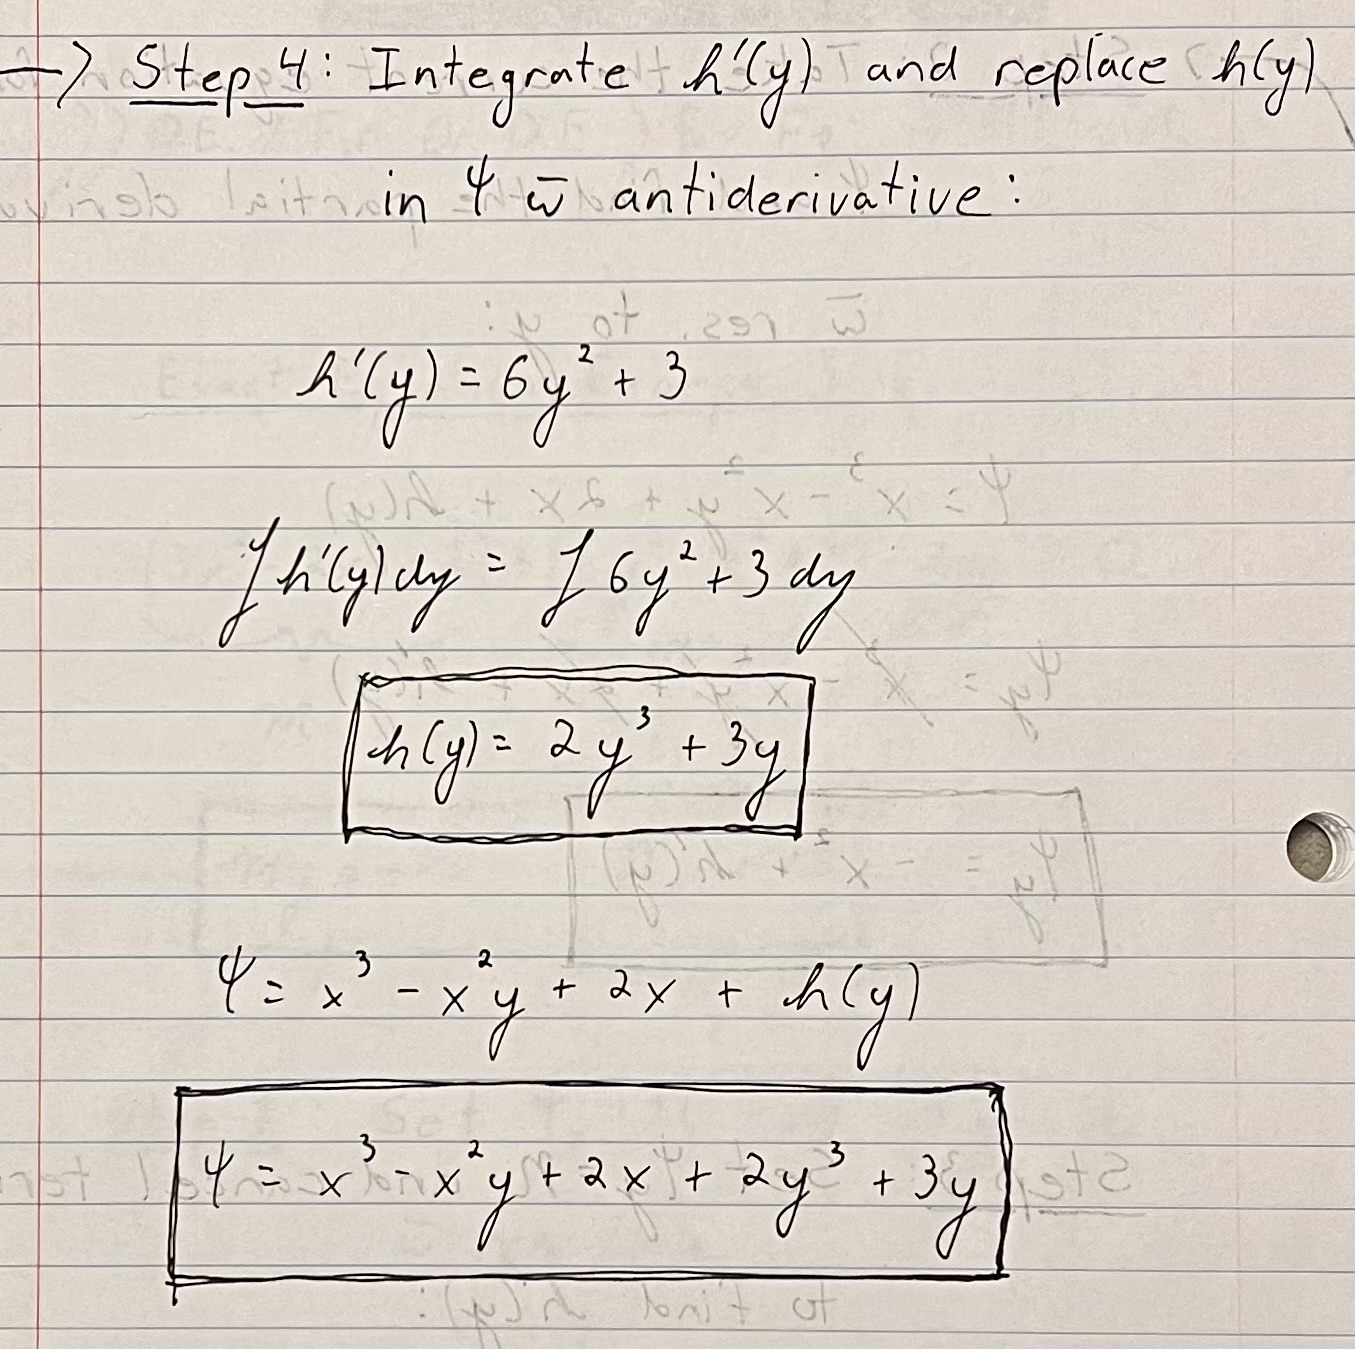 → Step 4: Integrate h'(y) and replace h(y)
in ψ w̄ antiderivative:
h'(y) = 6y² + 3
∫ h'(y) dy = ∫ 6y² + 3 dy
h(y) = 2y³ + 3y
ψ = x³ - x²y + 2x + h(y)
ψ = x³ - x²y + 2x + 2y³ + 3y